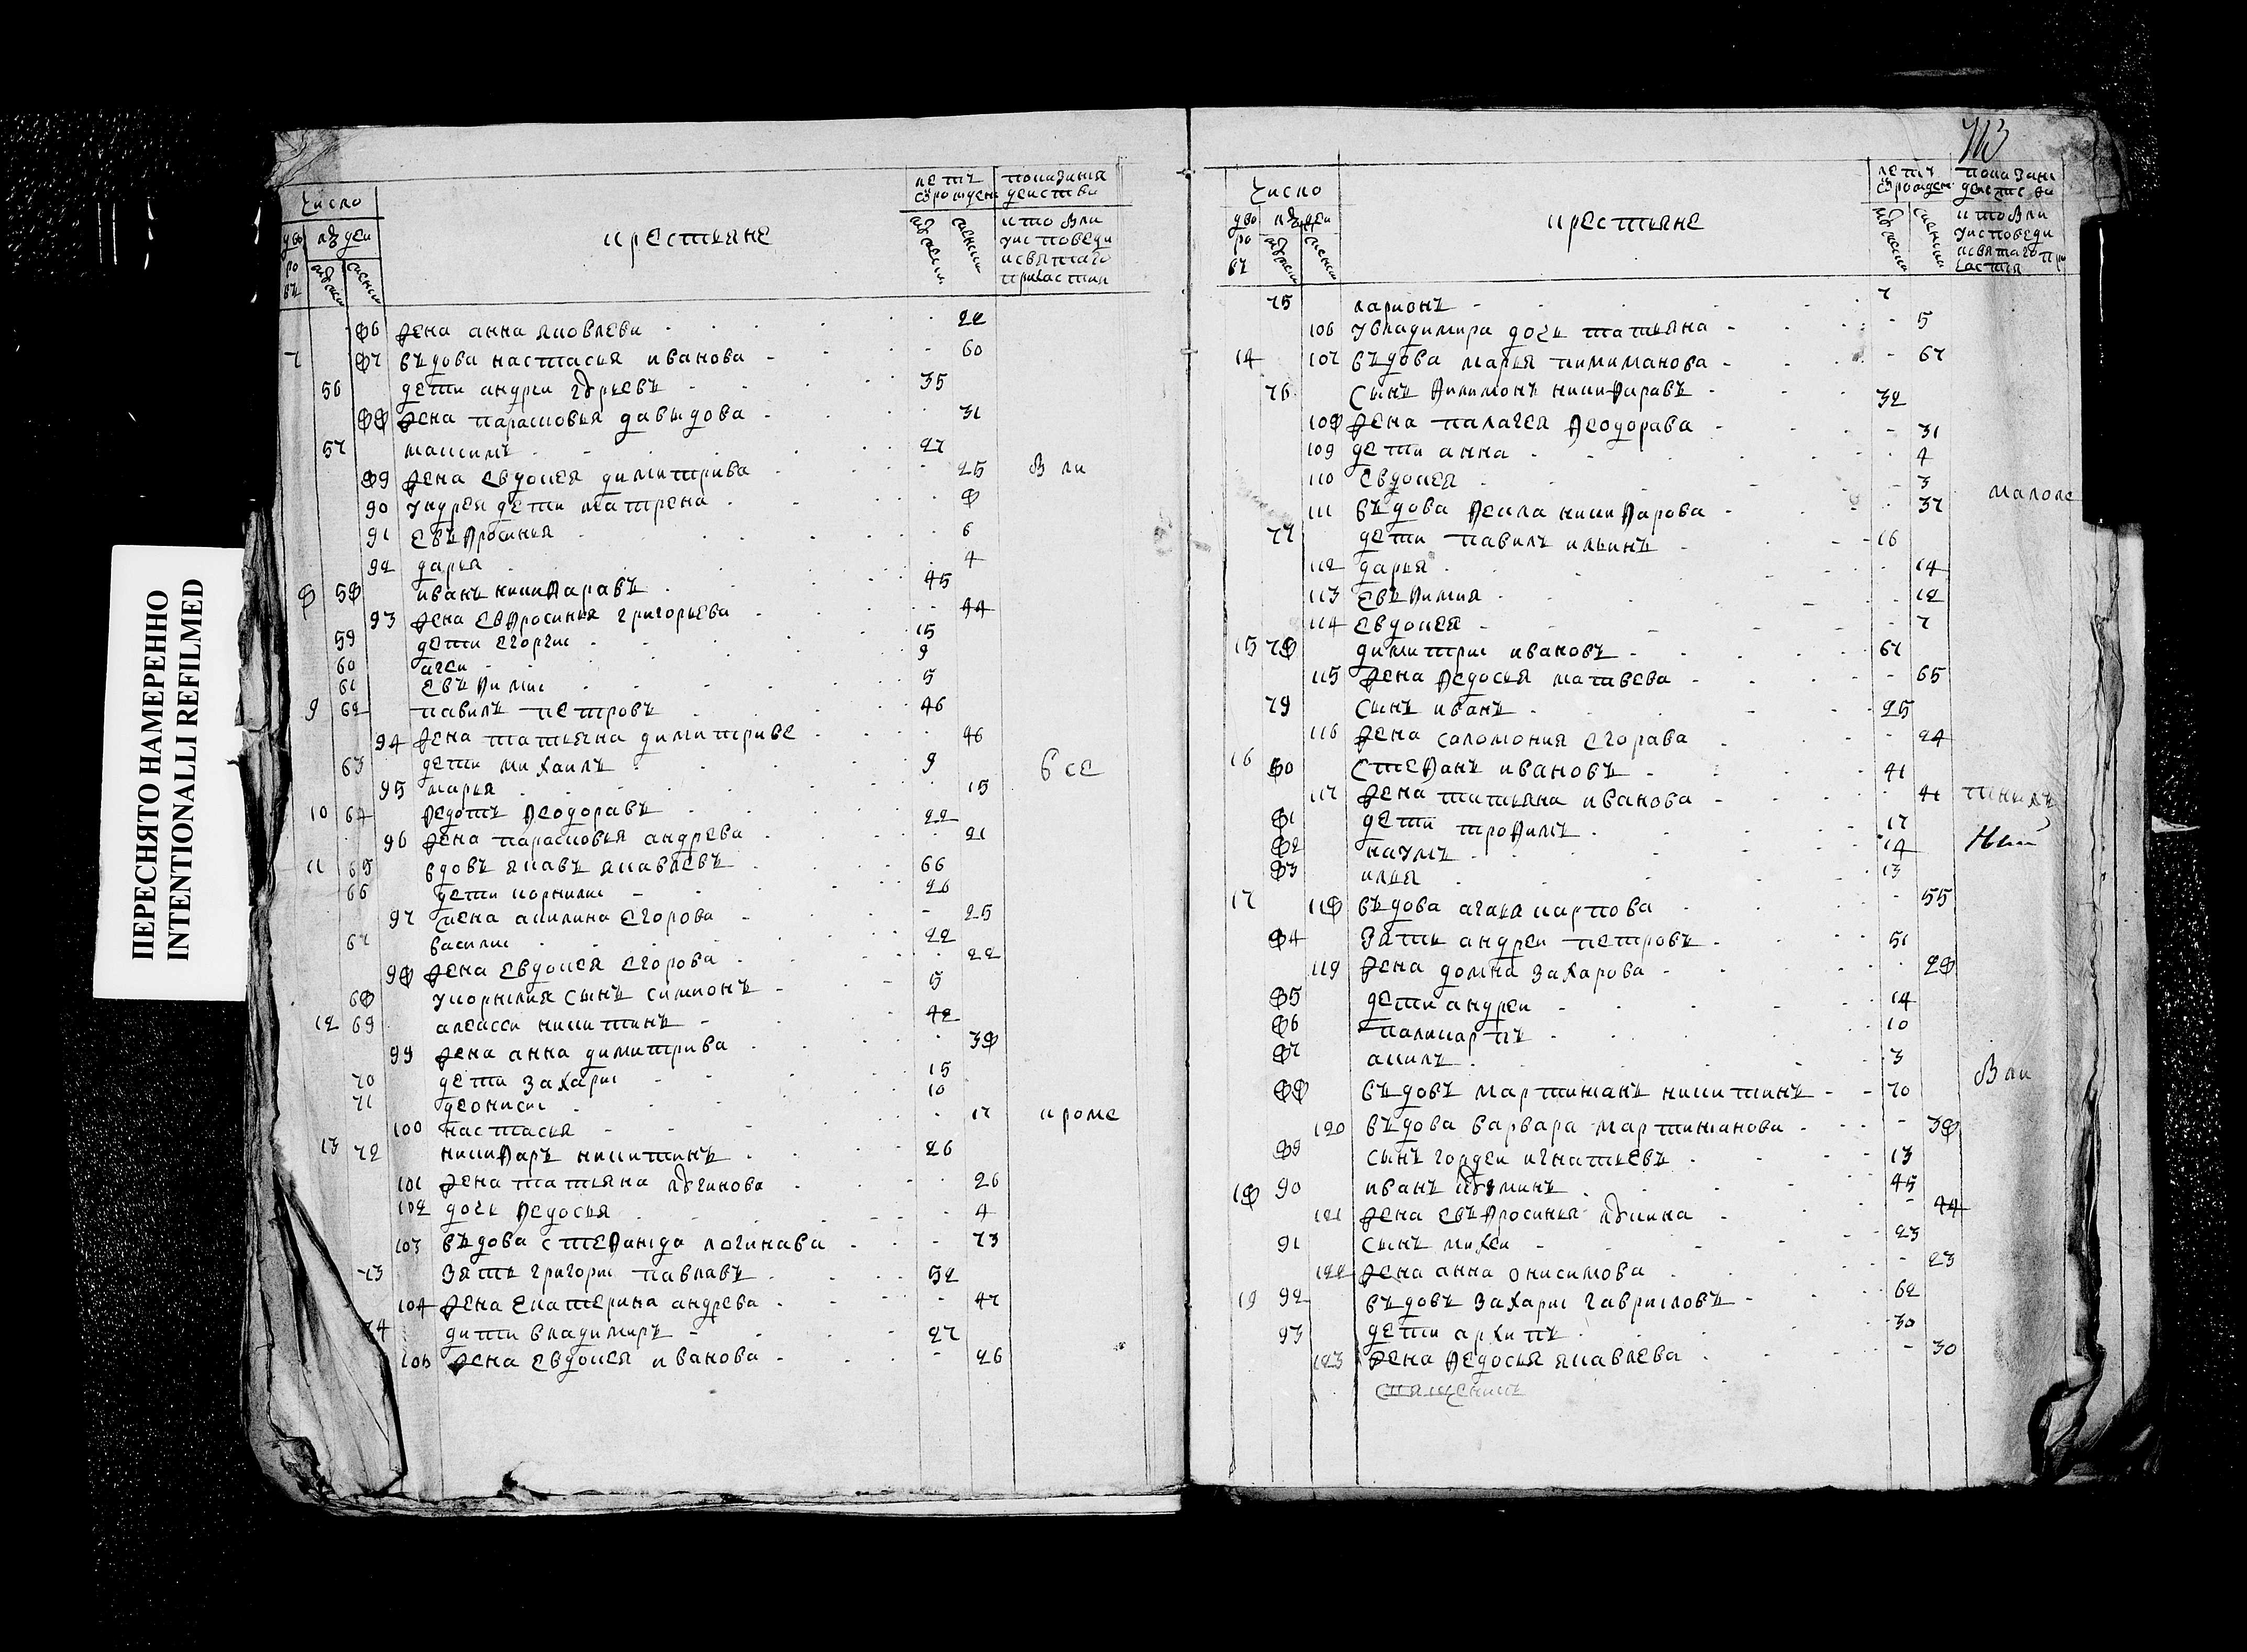 ПЕРЕСНЯТО НАМЕРЕННО
INTENTIONALLI REFILMED
число крестьяне летъ показание
86 жена анна яковлева 22
7 87 въдова настасья иванова 60
56 дети андреи юрьевъ 35
88 жена парасковья давыдова 31
57 максимъ 27
89 жена евдокея димитрива 25 были
90 уандрея дети матрена 8
91 евъфросинья 6
92 дарья 4
8 58 иванъ никифаравъ 45
93 жена евфросинья григорьева 44
59 дети егоргии 15
60 агеи 9
61 евъфимии 5
9 62 павилъ петровъ 46
94 жена татьяна димитриве 46
63 дети михаилъ 9 все
95 марья 15
10 64 федотъ феодоравъ 22
96 жена парасковья андрева 21
11 65 вдовъ яковъ яковлевъ 66
66 дети корнилии 26
97 жена акилина егорова 25
67 василии 22
98 жена евдокея егорова 22
68 укорнилия сынъ симионъ 5
12 69 алексеи никитинъ 42
99 жена анна димитрива 38
70 дети захарии 15
71 деонисии 10
100 настасья 17 кроме
13 72 никифаръ никитинъ 26
101 жена татьяна логинова 26
102 дочь федосья 4
103 въдова стефанида логинава 73
73 зять григории павлавъ 52
104 жена екатерина андрева 47
74 дитти владимиръ 27
105 жена евдокея иванова 26
713
число крестьяне летъ
75 ларионъ 7
106 увладимира дочь татьяна 5
14 107 въдова марья пимиманова 67
76 сынъ филимонъ никифаравъ 32
108 жена палагея феодорава 31
109 дети анна 4
110 евдокея 3
111 въдова фекла никифарова 37 малоле
77 дети павилъ ильинъ 16
112 дарья 14
113 евъфимия 12
114 евдокея 7
15 78 димитрии ивановъ 67
115 жена федосья матвева 65
79 сынъ иванъ 25
116 жена саломония егорава 24
16 80 стефанъ ивановъ 41
117 жена татьяна иванова 41
81 дети трофимъ 17
82 наумъ 14
83 илья 13
17 118 въдова агафья карпова 55
84 зять андреи петровъ 51
119 жена домна захарова 28
85 дети андреи 14
86 паликарпъ 10
87 акилъ 3
88 въдовъ мартимианъ никитинъ 70 были
120 въдова варвара мартимианова 38
89 сынъ гордеи игнатьевъ 13
18 90 иванъ козминъ 45
121 жена евъфросинья 44
91 сынъ михеи 23
122 жена анна онисимова 23
19 92 въдовъ захарии гавриловъ 62
93 дети архипъ 30
123 жена федосья яковлева 30